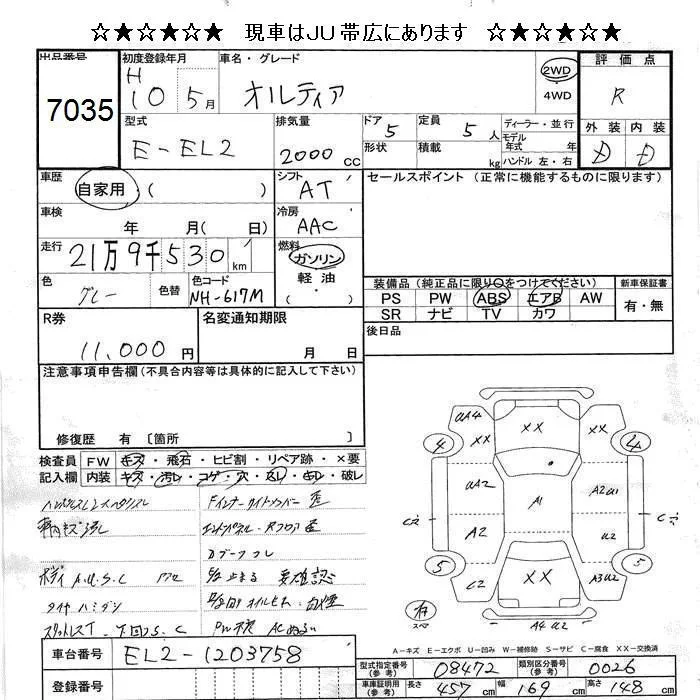 ☆★☆★☆★ 現車はJU帯広にあります ☆★☆★☆★
出品番号 7035
初度登録年月 H 10 5月
車名・グレード オルティア
2WD
4WD
評価点 R
外装 内装
D D
型式 E-EL2
排気量 2000 cc
ドア 5 形状
定員 5 人 積載 kg
ディーラー・並行
モデル年式 年
ハンドル 左・右
車歴 自家用・( )
シフト AT
セールスポイント (正常に機能するものに限ります)
車検 年 月( 日)
冷房 AAC
走行 21万9千530 km
燃料 ガソリン
軽油
・( )
色 グレー
色替
色コード NH-617M
装備品(純正品に限り○をつけてください)
新車保証書
PS PW ABS エアB AW
SR ナビ TV カワ
有・無
R券 11,000円
名変通知期限 月 日
後日品
注意事項申告欄(不具合内容等は具体的に記入して下さい)
修復歴 有 〔箇所 〕
検査員 FW キズ・飛石・ヒビ割・リペア跡・×要
記入欄 内装 キズ・汚レ・コゲ・穴・スレ・キレ・破レ
ボディ A.U.S.C
タイヤ ハミダシ
スタットレスT 下回りS.C
UA4 XX XX
4 4
XX
UA2 A1 A2U1
A2 U2
5 5
C2 XX A3U2
有 スペア
A4 U2
A-キズ E-エクボ U-凹み W-補修跡 S-サビ C-腐食 XX-交換済
車台番号 EL2-1203758
登録番号
型式指定番号(参考) 08472
類別区分番号(参考) 0026
車庫証明用(参考) 長さ 457 cm 幅 169 cm 高さ 148 cm